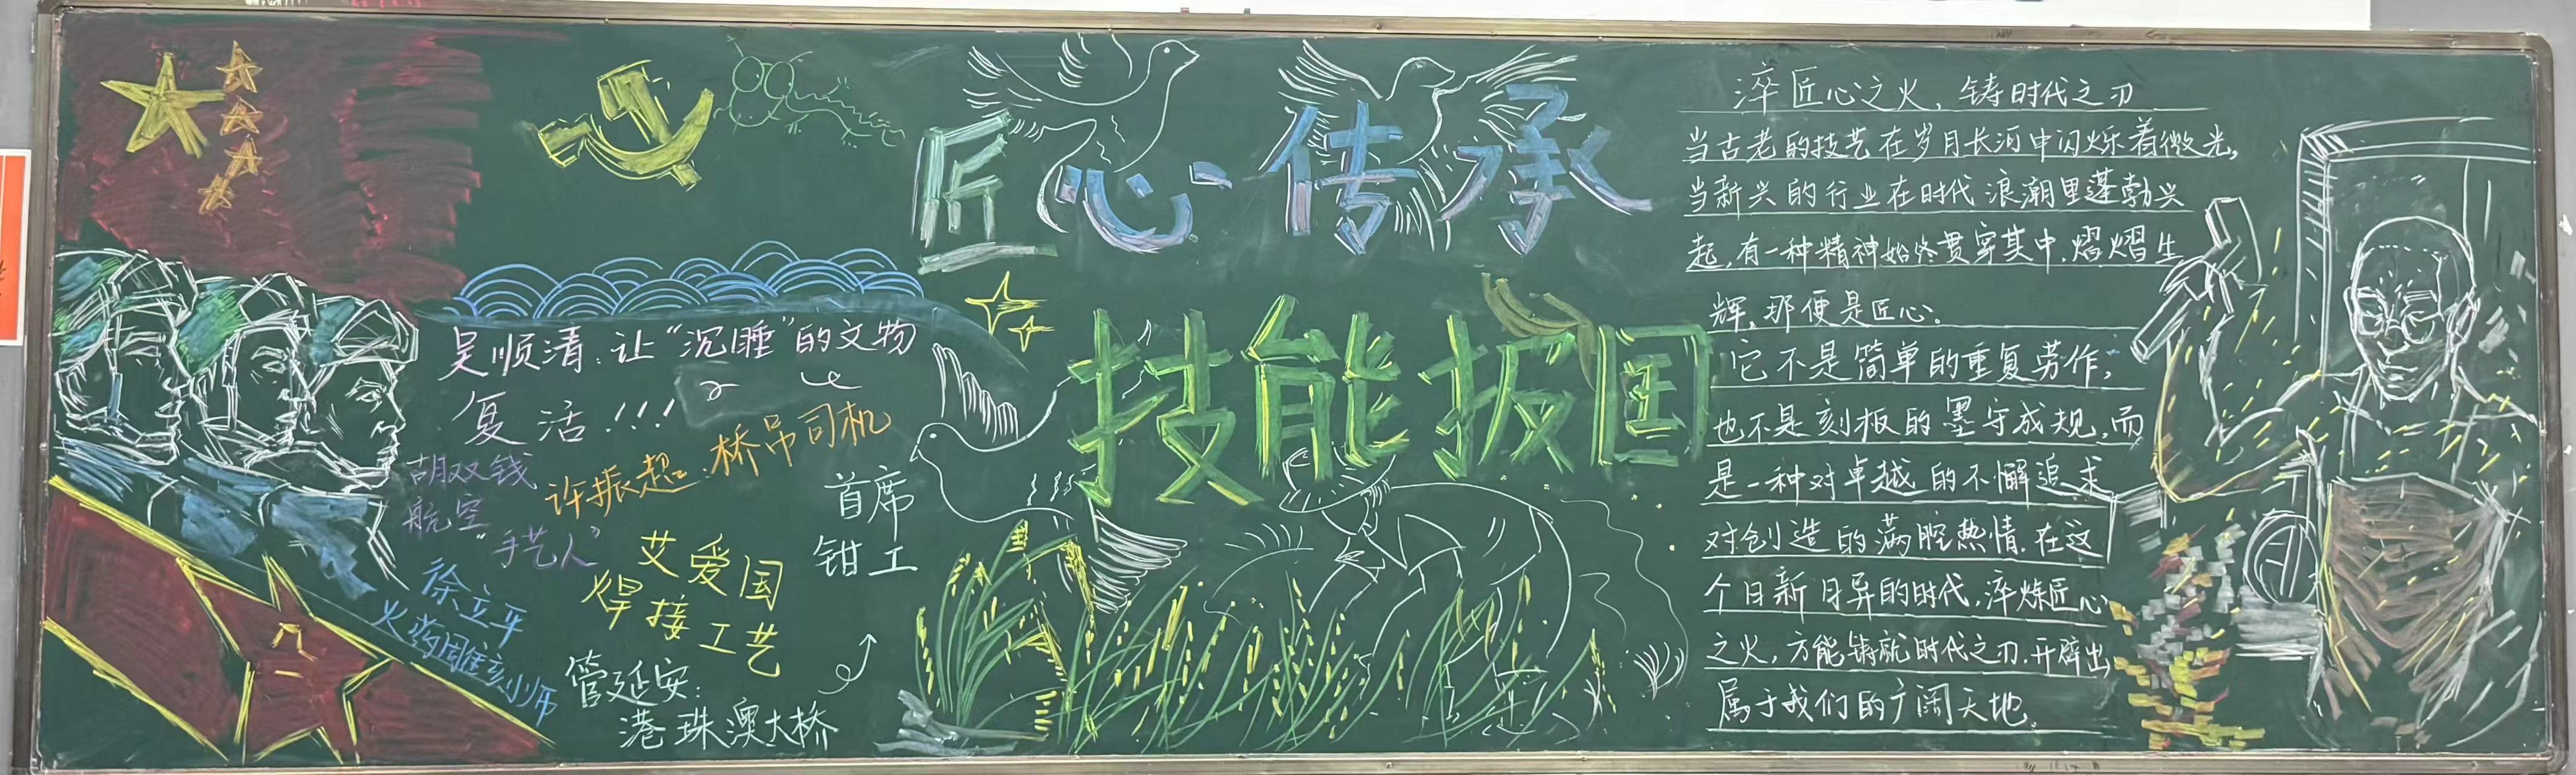 匠心传承
技能报国
吴顺清：让“沉睡”的文物
复活！！！
胡双钱
航空
“手艺人”
许振超：桥吊司机
艾爱国
焊接工艺
徐立平
火药固雕刻师
管延安：
港珠澳大桥
首席
钳工
淬匠心之火，铸时代之刃
当古老的技艺在岁月长河中闪烁着微光，
当新兴的行业在时代浪潮里蓬勃兴
起，有一种精神始终贯穿其中，熠熠生
辉，那便是匠心。
它不是简单的重复劳作，
也不是刻板的墨守成规，而
是一种对卓越的不懈追求
对创造的满腔热情，在这
个日新月异的时代，淬炼匠心
之火，方能铸就时代之刃，开辟出
属于我们的广阔天地。